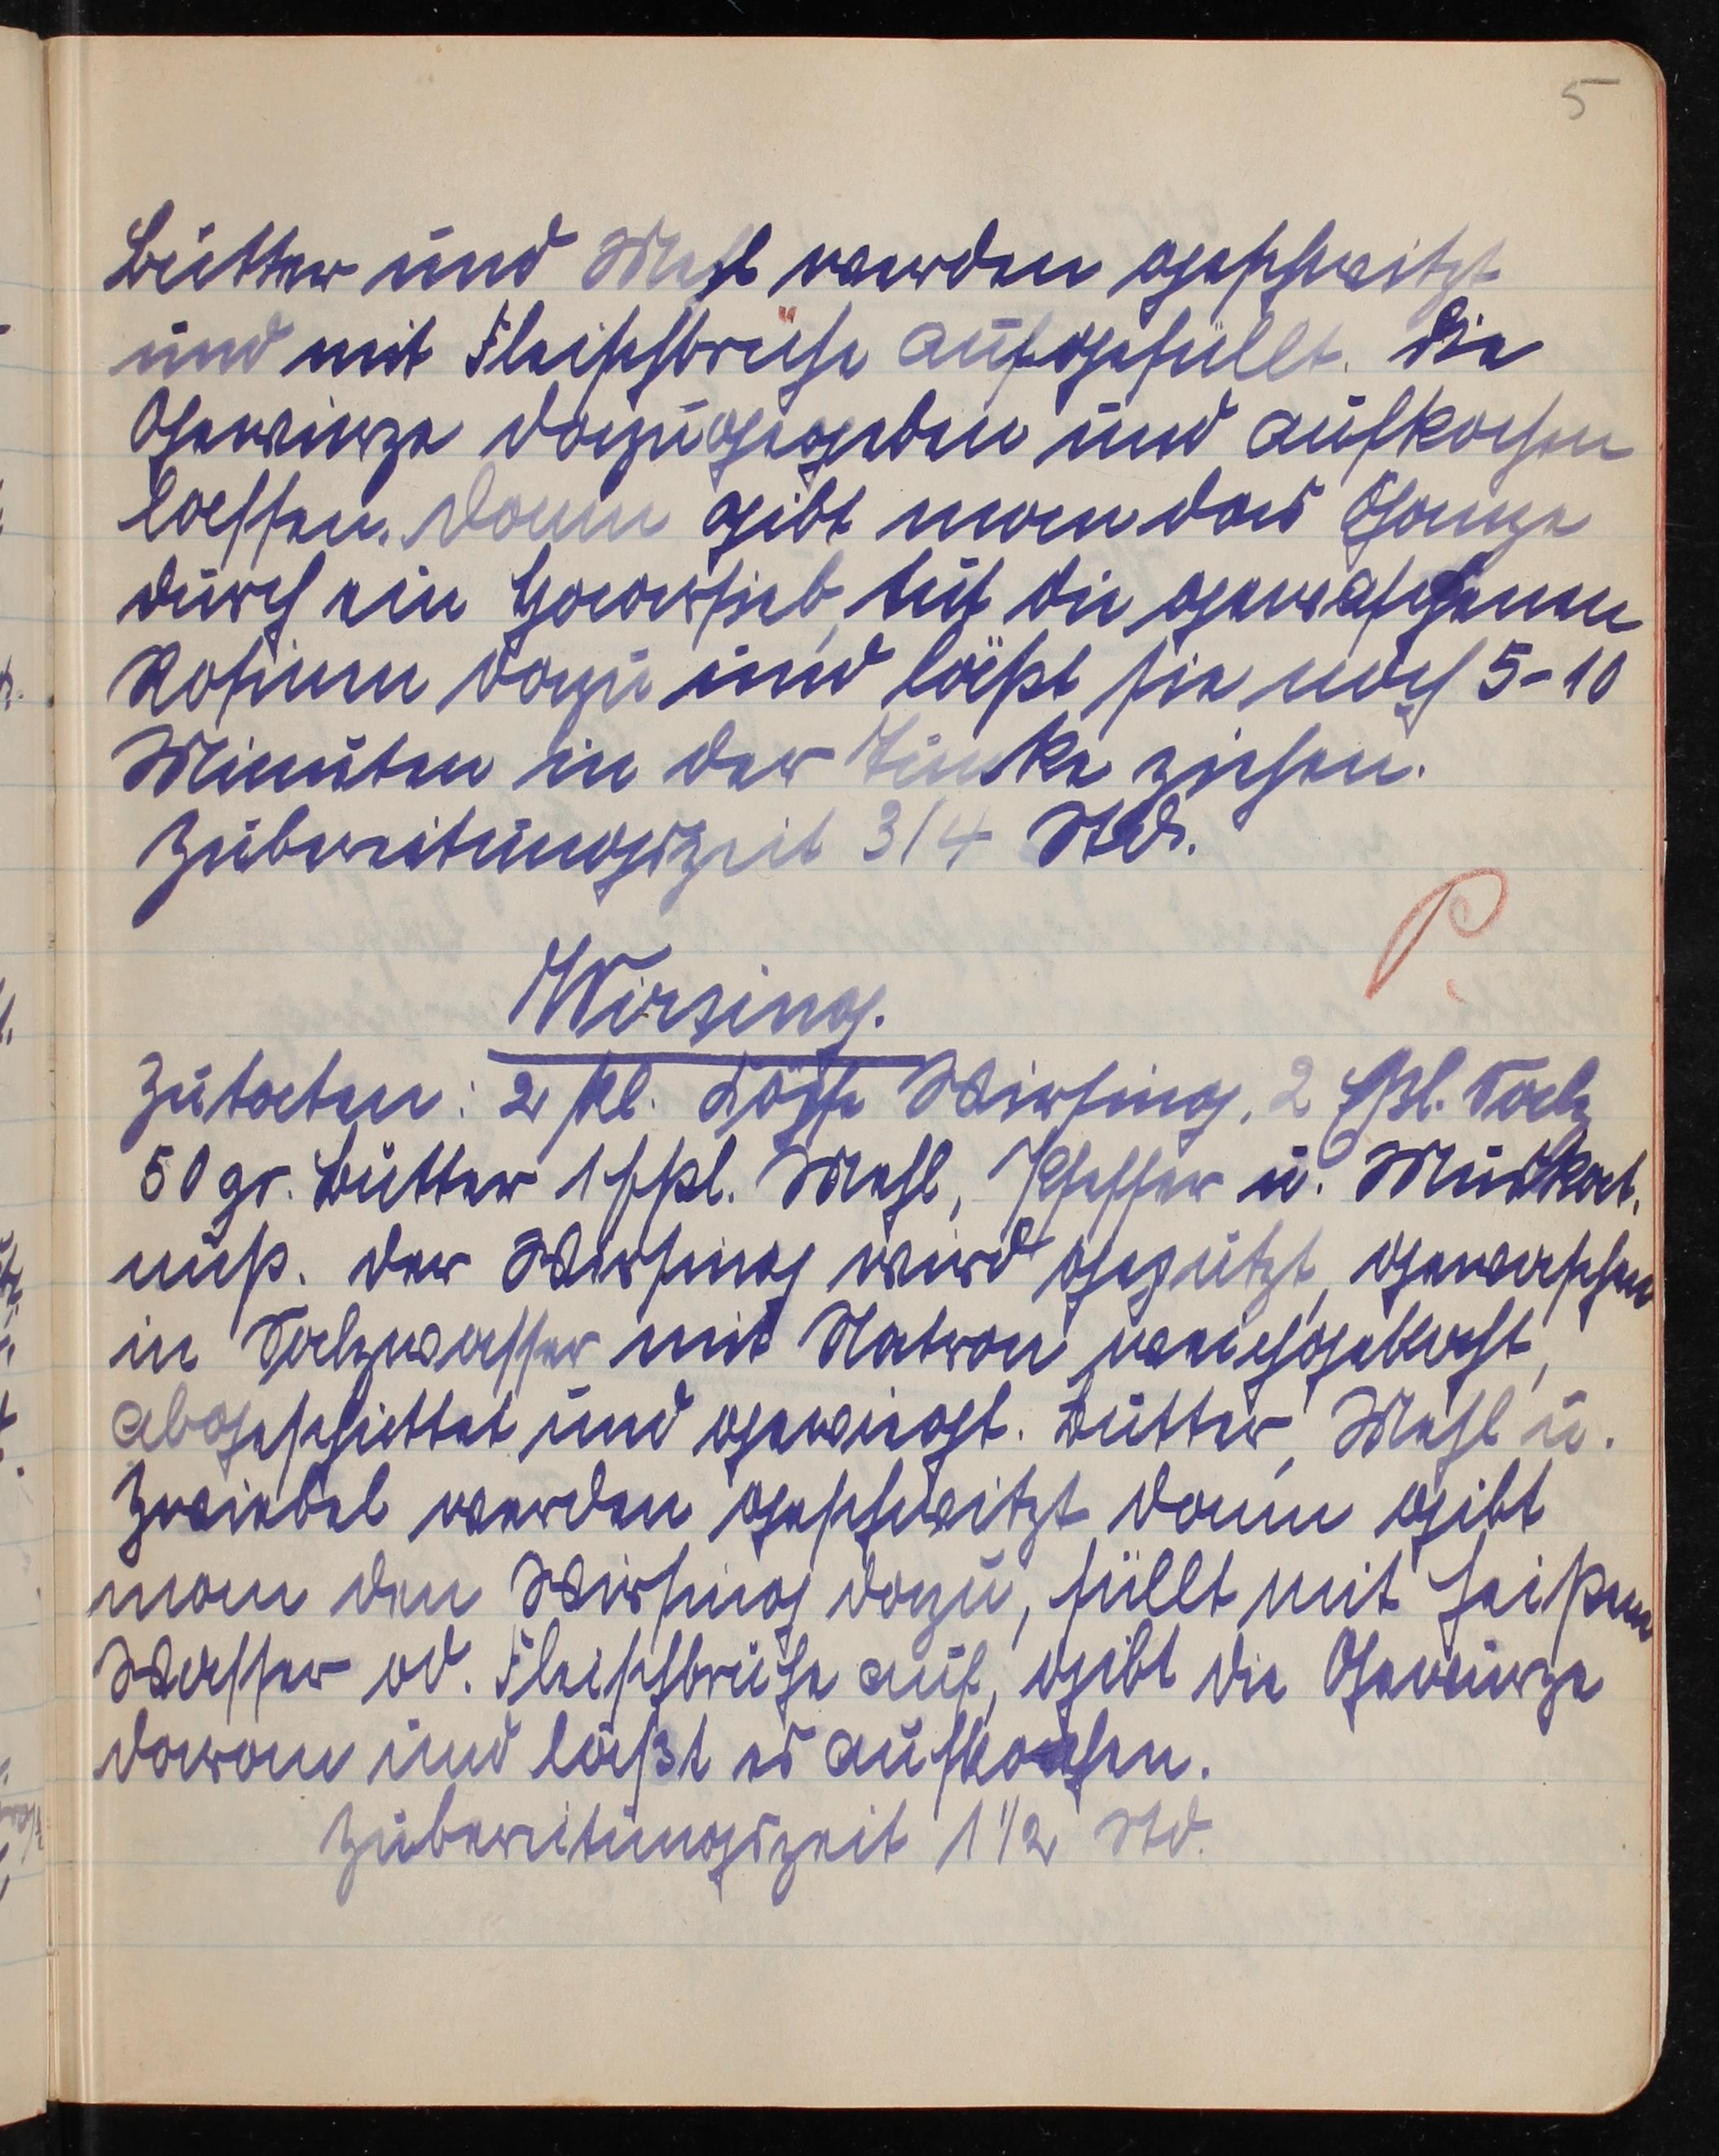 5
Butter und Mehl werden geschwitzt
und mit Fleischbrühe aufgefüllt. Die
Gewürze dazugegeben und aufkochen
lassen. Dann gibt man das Ganze
durch ein Haarsieb, tut die gewaschenen
Rosinen dazu und läßt sie noch 5-10
Minuten in der Tunke ziehen.
Zubereitungszeit 3/4 Std.
P.
Wirsing.
Zutaten: 2 kl. Köpfe Wirsing, 2 Eßl. Salz
50 gr. Butter 1 Eßl. Mehl, Pfeffer u. Muskat.
nuß. Der Wirsing wird geputzt, gewaschen
in Salzwasser mit Natron weichgekocht,
abgeschüttet und gewiegt. Butter, Mehl u.
Zwiebel werden geschwitzt dann gibt
man den Wirsing dazu, füllt mit heißem
Wasser od. Fleischbrühe auf, gibt die Gewürze
daran und läßt es aufkochen.
Zubereitungszeit 1 1/2 Std.